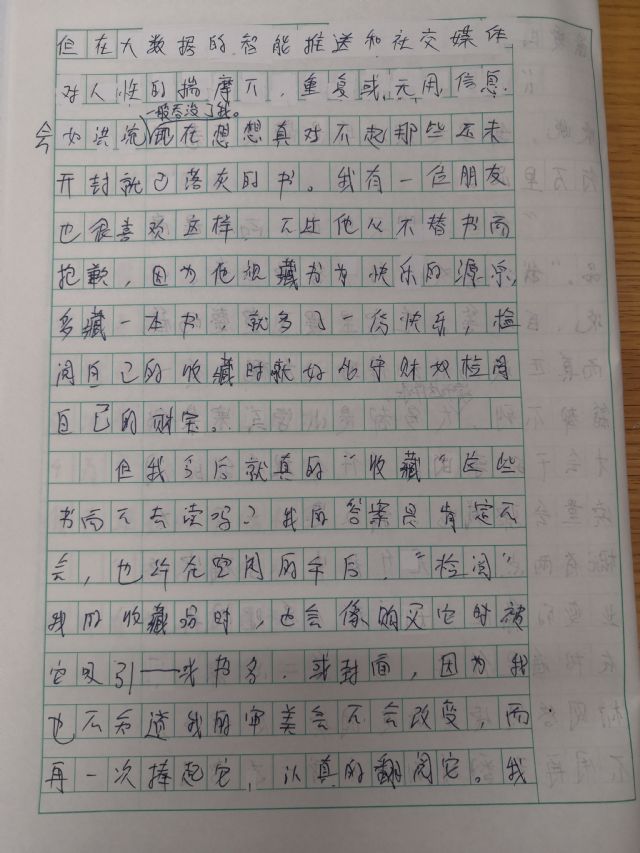 但在大数据的智能推送和社交媒体
对人性的揣摩下，重复或无用信息
一般吞没了我。
会如洪流现在想想真对不起那些还未
开封就已落灰的书。我有一位朋友
也很喜欢这样，不过他从不替书而
抱歉，因为他视藏书为快乐的源泉，
多藏一本书，就多了一份快乐，检
阅自己的收藏时就好似守财奴检阅
自己的财宝。
但我今后就真的“收藏”这些
书而不去读吗？我的答案是肯定不
会，也许在空闲的午后，“检阅”
我的收藏品时，也会像购买它时被
它吸引——或书名，或封面，因为我
也不知道我的审美会不会改变，而
再一次捧起它，认真的翻阅它。我